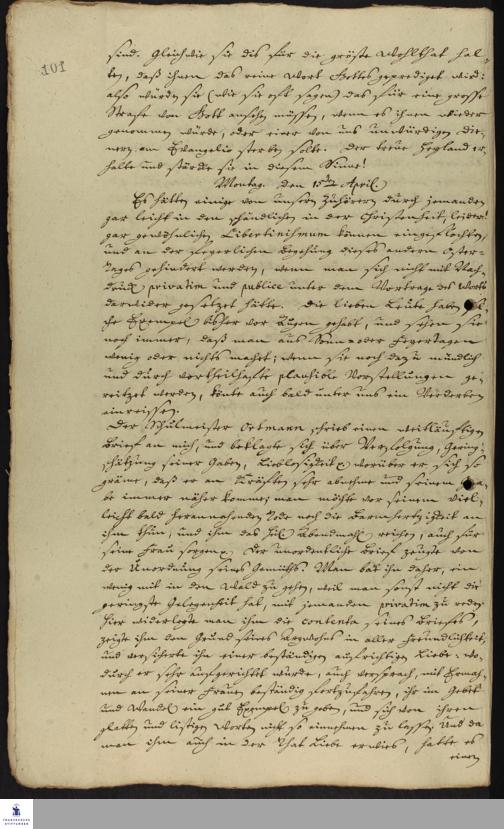 101
sind. Gleichwie sie dis für die gröste Wohlthat hal-
ten, daß ihnen das reine Wort Gottes geprediget wird:
also würden sie (wie sie oft sagen) das für eine grosse
Strafe von Gott ansehen müssen, wenn es ihnen wieder
genommen würde, oder einer von uns unwürdigen Die-
nern am Evangelio sterben solte. Der treue Heyland er-
halte und stärcke sie in diesem Sinne!
Montag. den 15te April.
Es hätten einige von unsern Zuhörern durch jemanden
gar leicht in den schändlichen in der Christenheit, leider!
gar gewöhnlichen Libertinismum können eingeflochten,
und an der feyerlichen Begehung dieses andern Oster-
Tages gehindert werden, wenn man sich nicht mit Nach-
druck privatim und publice unter dem Vortrage des Worts
darwider gesetzet hätte. Die lieben Leute haben
che Exempel bisher vor Augen gehabt, und sehen sie
noch immer, daß man aus Sonn- oder Feyertagen
wenig oder nichts machet; wenn sie noch dazu mündlich
und durch vortheilhafte plausible Vorstellungen ge-
reitzet werden, könte auch bald unter uns ein Verderben
einreissen.
Der Schulmeister Ortmann schrieb einen weitläuftigen
Brief an mich, und beklagte sich über Verfolgung, Gering-
schätzung seiner Gaben, Lieblosigkeit worüber er sich so
gräme, daß er an Kräften sehr abnehme und seinem
be immer näher komme; man möchte vor seinem viel-
leicht bald herannahenden Tode noch die Barmhertzigkeit an
ihm thun, und ihm das Heil. Abendmahl reichen, auch für
seine Frau sorgen. Der unordentliche Brief zeugte von
der Unordnung seines Gemüths. Man bat ihn daher, ein
wenig mit in den Wald zu gehen, weil man sonst nicht die
geringste Gelegenheit hat, mit jemandem privatim zu reden.
Hier widerlegte man ihm die contenta seines Briefes,
zeigte ihm den Grund seines Argwohns in aller Freundlichkeit,
und versicherte ihn einer beständigen aufrichtigen Liebe, wo-
durch er sehr aufgerichtet wurde, auch versprach, mit Ermah-
nen an seiner Frauen beständig fortzufahren, ihr im Gebet
und Wandel ein gut Exempel zu geben, und sich von ihren
glatten und listigen Worten nicht so einnehmen zu lassen. Und da
man ihm auch in der That Liebe erwies, hatte es
einen
FRANCKESCHE
STIFTUNGEN